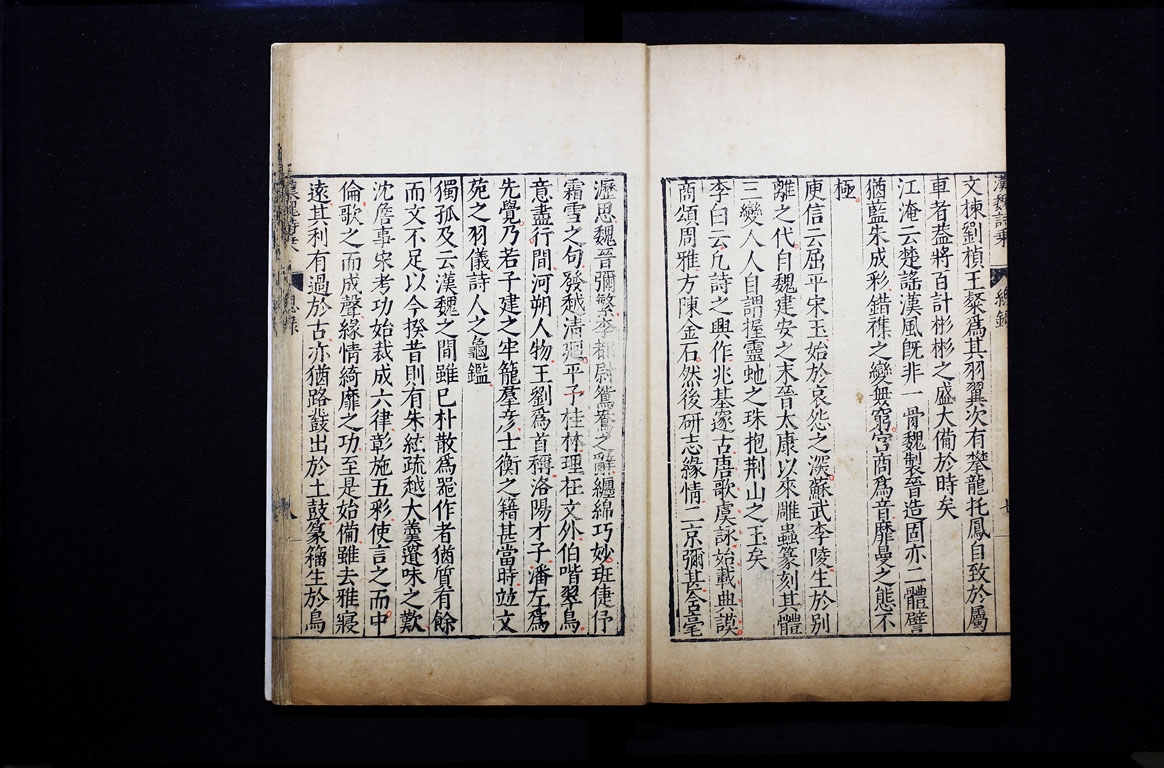 漢魏詩乘
總錄
七
文棟劉楨王粲爲其羽翼次有攀龍托鳳自致於屬
車者葢將百計彬彬之盛大備於時矣
江淹云楚謠漢風旣非一骨魏製晉造固亦二體譬
猶藍朱成彩錯襍之變無窮宮商爲音靡曼之態不
極
庾信云屈平宋玉始於哀怨之深蘇武李陵生於別
離之代自魏建安之末晉太康以來雕蟲篆刻其體
三變人人自謂握靈虵之珠抱荆山之玉矣
李白云凢詩之興作兆基邃古唐歌虞詠始載典謨
商頌周雅方陳金石然後研志緣情二京彌甚含毫
瀝思魏晉彌繁李都尉鴛鴦之辭纏綿巧妙班倢伃
霜雪之句發越淸迥平子桂林理在文外伯喈翠鳥
意盡行間河朔人物王劉爲首稱洛陽才子潘左爲
先覺乃若子建之牢籠羣彦士衡之籍甚當時竝文
苑之羽儀詩人之龜鑑
獨孤及云漢魏之間雖已朴散爲噐作者猶質有餘
而文不足以今揆昔則有朱絃疏越大羹遺味之歎
沈詹事宋考功始裁成六律彰施五彩使言之而中
倫歌之而成聲緣情綺靡之功至是始備雖去雅寖
遠其利有過於古亦猶路鼗出於土鼓篆籀生於鳥
總錄
八